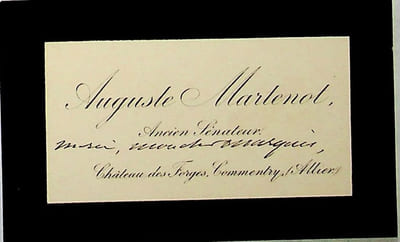 Auguste Martenot,
Ancien Sénateur.
merci, mon cher Marquis,
Château des Forges, Commentry, (Allier)